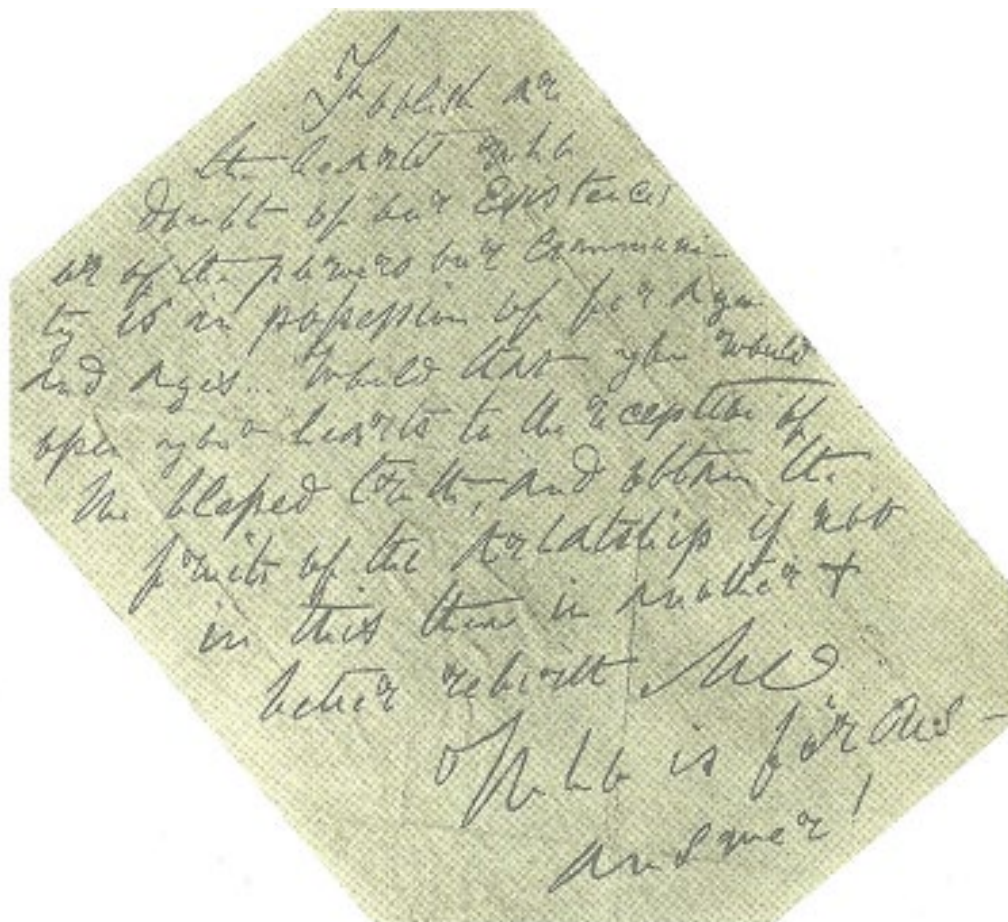 Foolish are
the hearts who
doubt of our Existence;
or of the powers our Communi-
ty is in possession of for ages
and ages.. Would that you would
open your hearts to the reception of
the blessed truth, and obtain the
fruits of the Arhatship if not
in this then in another +
better rebirth M
Who is for us —
answer!